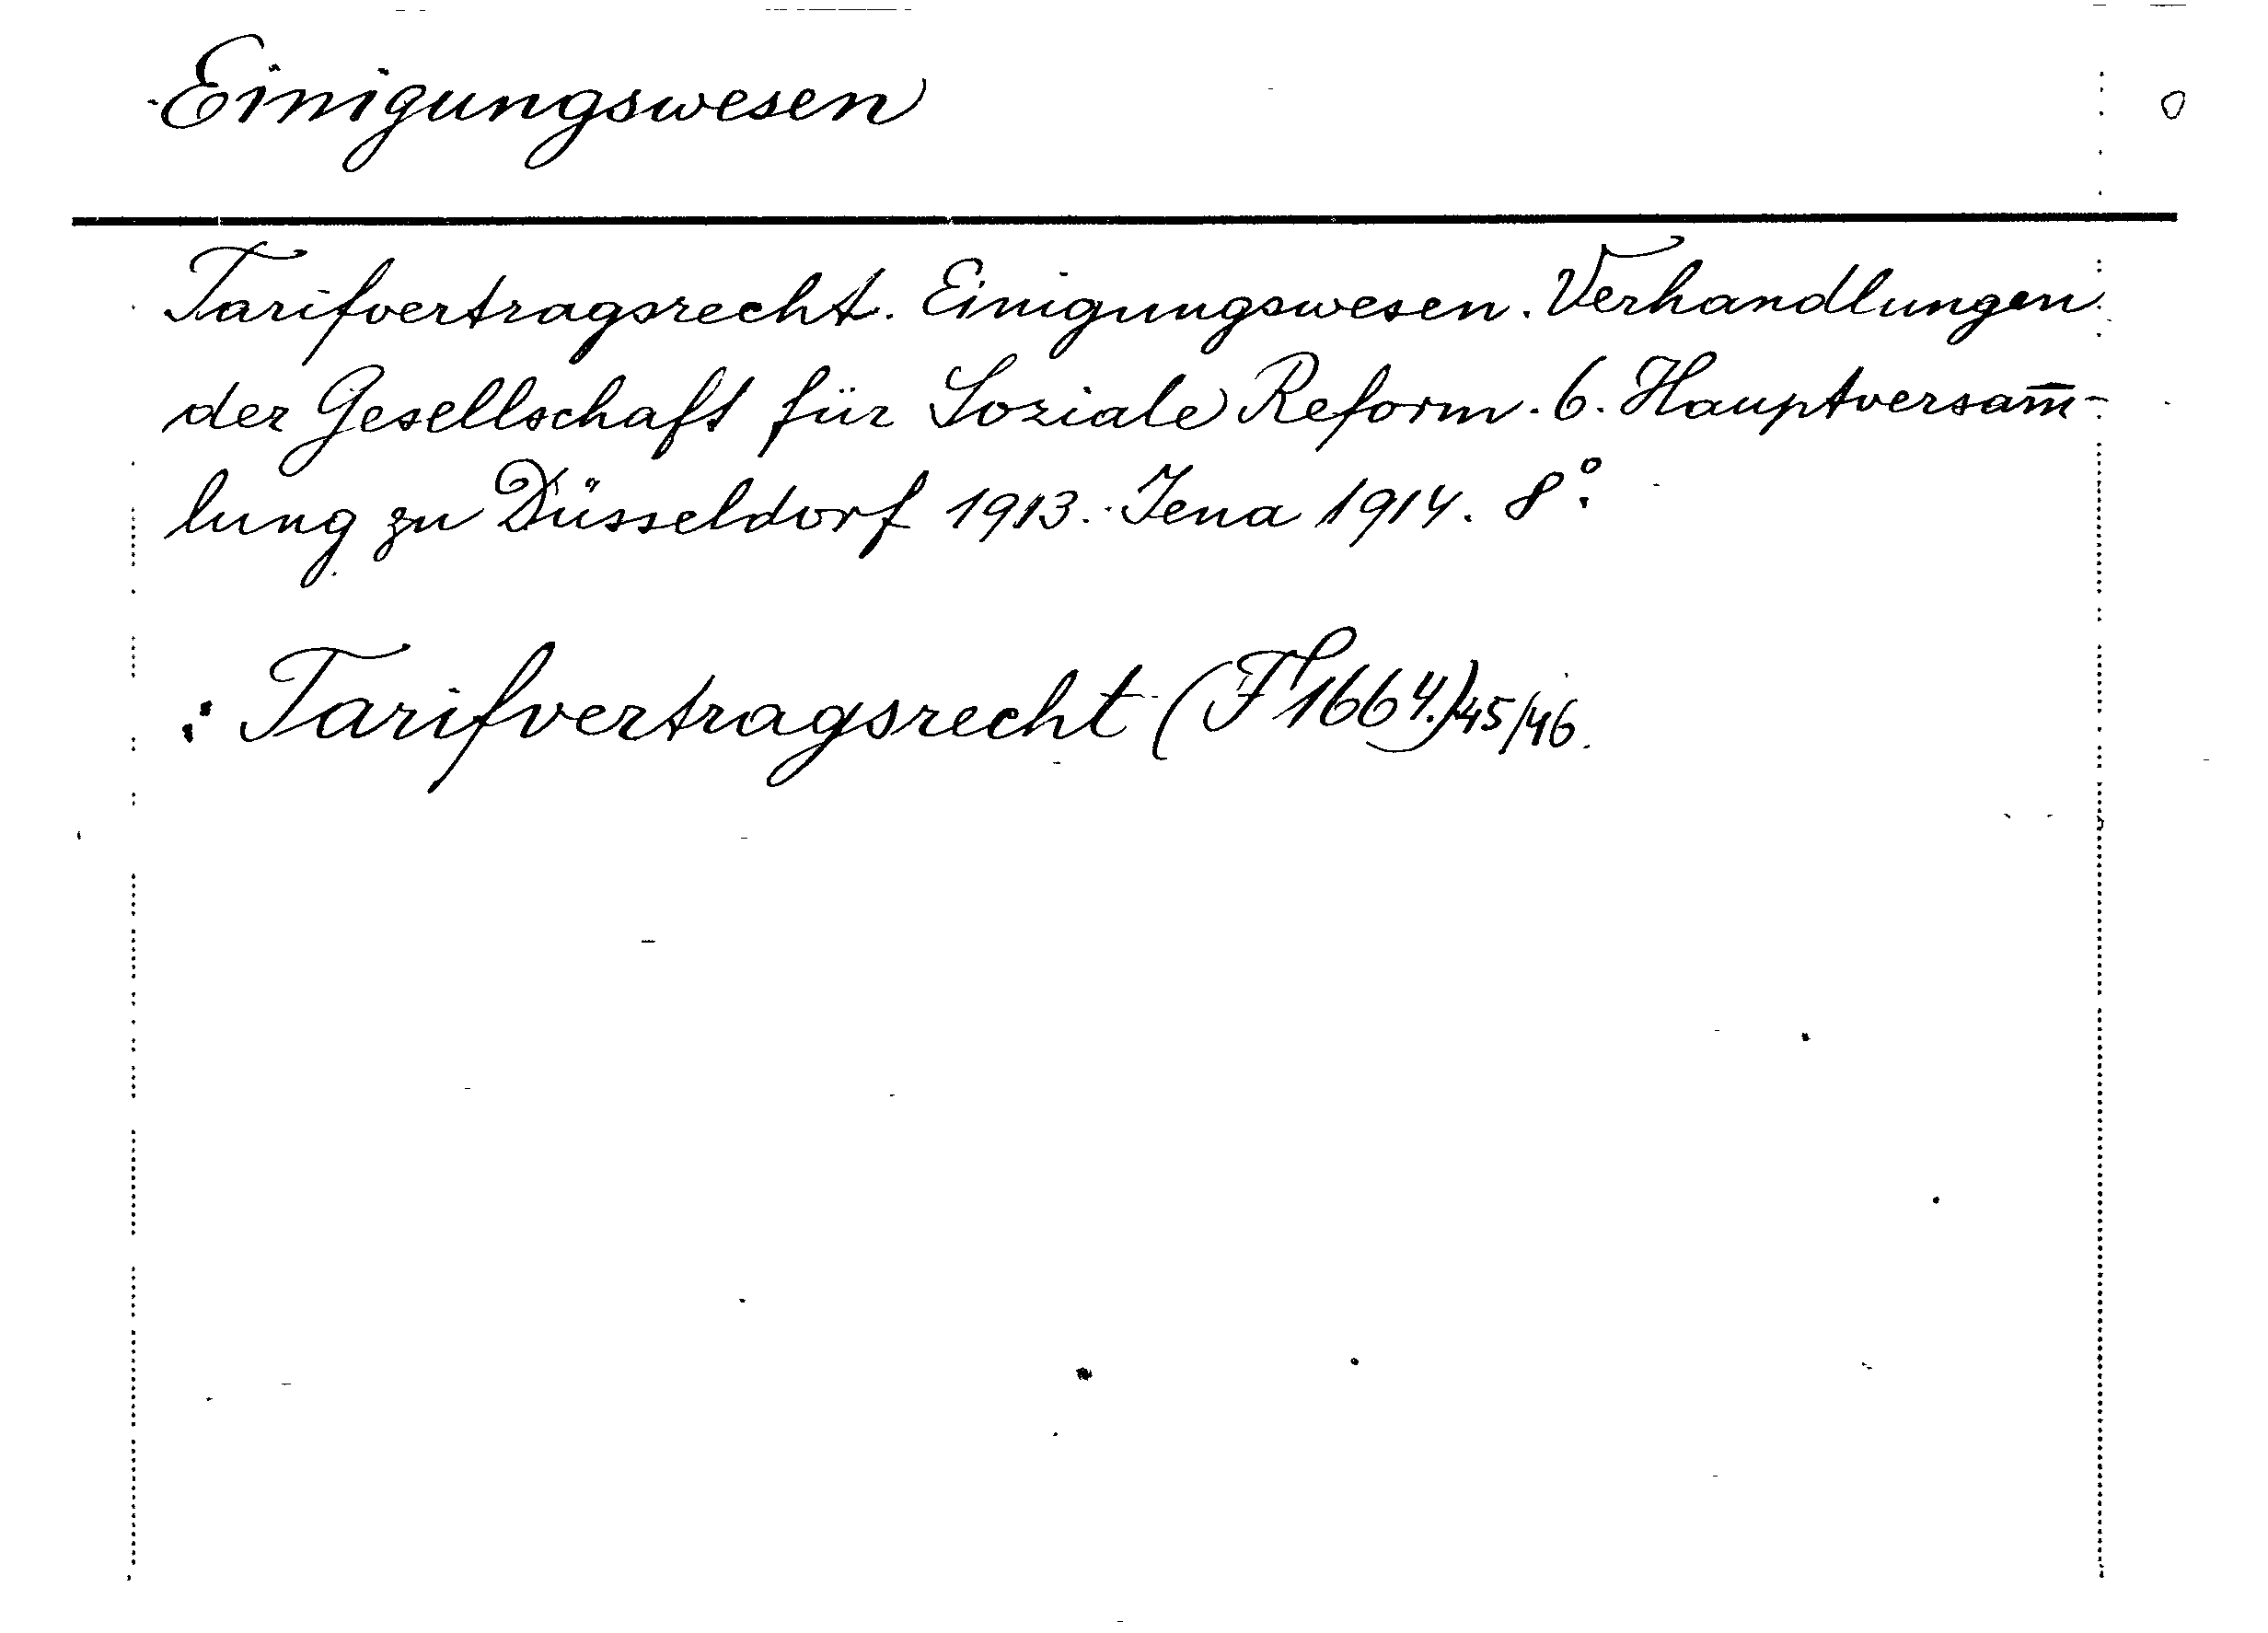 Einigungswesen
Tarifvertragsrecht. Einigungswesen. Verhandlungen
der Gesellschaft für Soziale Reform. 6. Hauptversam̅-
lung zu Düsseldorf 1913. Jena 1914. 8°.
: Tarifvertragsrecht (Fl 1664.) 45/46.